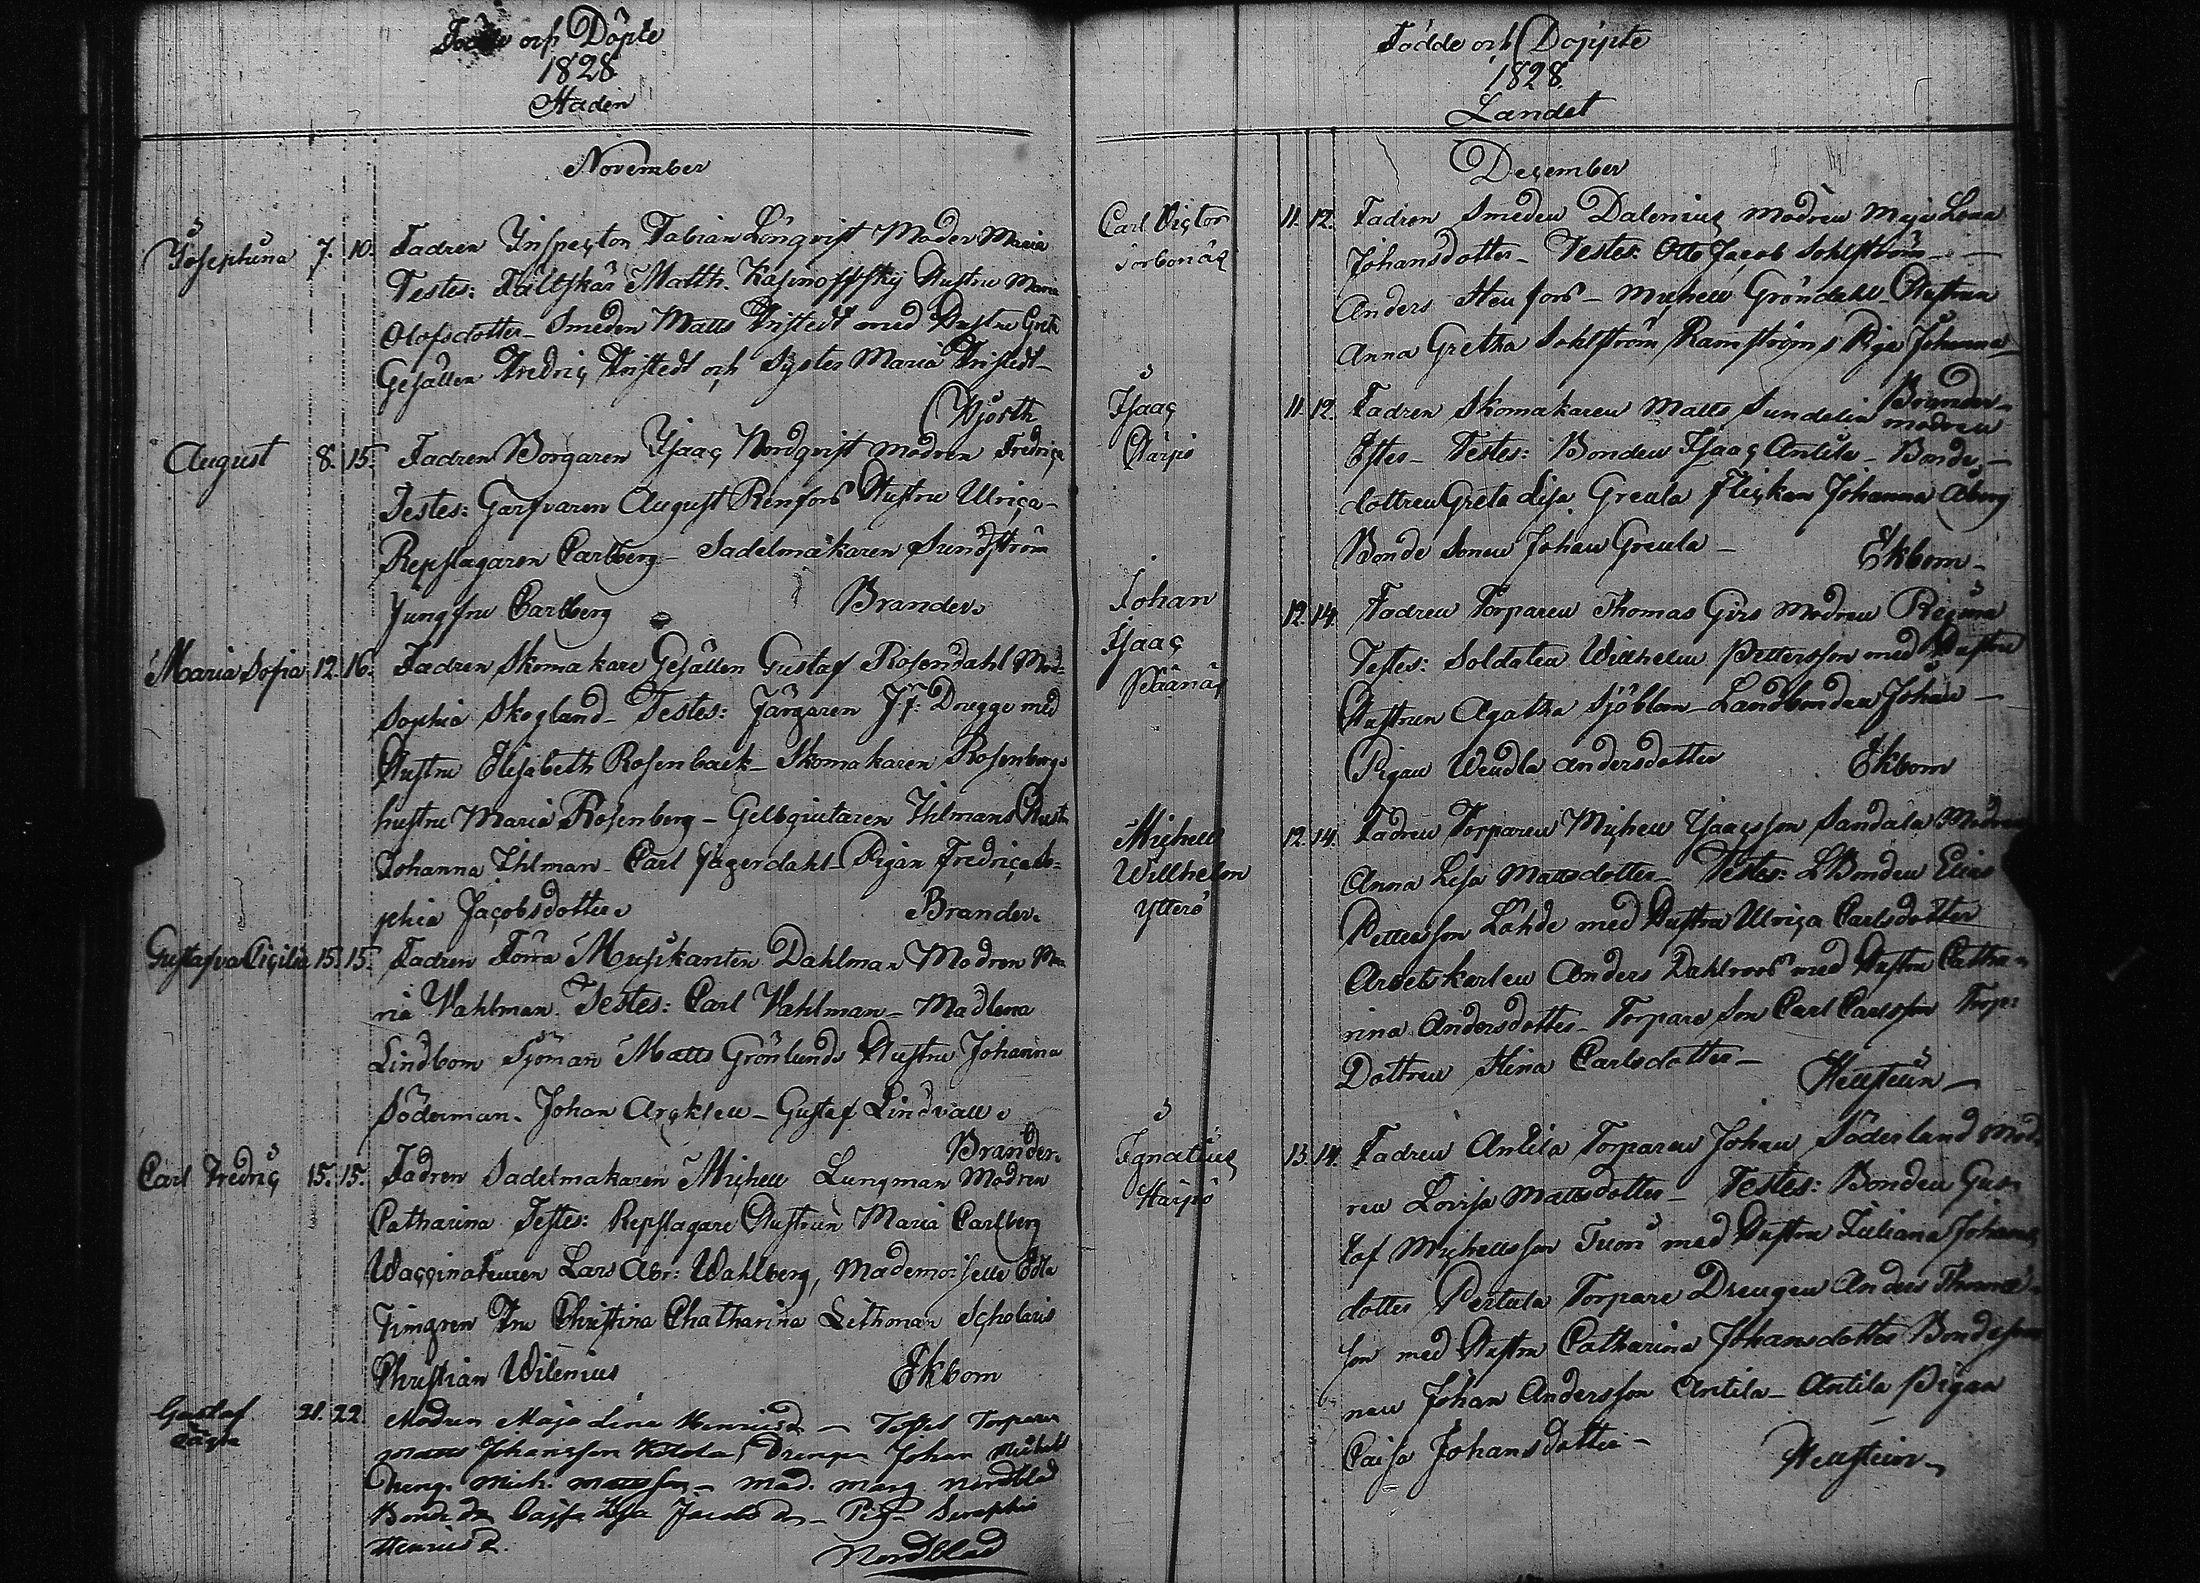 Födde och Döpte
1828
Staden
November
Josephina 7. 10. Fadren Inspector Fabian Lönqvist Moder Maria
Testes: Fältskär Matth. Kasinoffsky Hustru Maria
Olofsdotter - Smeden Matts Fristedt med Hustru Greta
Gesällen Fredric Fristedt och Syster Maria Fristedt -
Hjorth
August 8. 15. Fadren Borgaren Isaac Nordqvist modren Fredrica
Testes: Garfvaren August Renfors Hustru Ulrica
Repslagaren Carlberg - Sadelmakaren Sundström
Jungfru Carlberg Brander.
Maria Sofia 12. 16. Fadren Skomakare Gesällen Gustaf Rosendahl Mod:
Sophia Skogland - Testes: Färgaren J. F. Drugge med
Hustru Elisabeth Rosenback - Skomakaren Rosenbergs
hustru Maria Rosenberg - Gelbgiutaren Ihlmans Hustru
Johanna Ihlman - Carl Jägerdahl - Pigan Fredrica So-
phia Jacobsdotter. Brander.
Gustafva Cicilia 15. 15. Fadren Förra Musikanten Dahlman Modren Ma
ria Wahlman. Testes: Carl Wahlman - Madlena
Lindbom Sjöman Matts Grönlunds Hustru Johanna
Söderman. Johan - Gustaf Lindvall.
Brander.
Carl Fredric 15. 15. Fadren Sadelmakaren Michell Lungman Modren
Catharina. Testes: Repslagare Hustrun Maria Carlberg
Waccinateuren Lars Abr: Wahlberg, Mademoiselle Edla
Timgren Fru Christina Chatharina Lithman Scholaris
Christian Wilenius Ekbom
Gustaf 21. 22. Modren Maja Lina Henricsd - Testes Torparen
Matts Johansson Drengen Johan Michels
Dreng. Mich. Mattsson - Mad. Marg Nordblad
Bonde Cajsa Lisa Jacobs d. - Pig. Seraphia
Henricsd. Nordblad
Födde och Döpte
1828.
Landet
December
Carl Victor 11. 12. Fadren Smeden Dalenius modren Maja Lena
Torbonäs Johansdotter - Testes: Otto Jacob Sohlström -
Anders Stenfors - Michell Gröndahl - Hustrun
Anna Gretha Sohlström, Ramström, Piga Johanna -
Brander -
Isaac 11. 12. Fadren Skomakaren Matts Sundelin modren
Härpö Ester - Testes: Bonden Isaac Antila - Bonde -
dottren Greta Lisa Greula Flickan Johanna Åberg
Bonde Sonen Johan Greula - Ekbom -
Johan 12. 14. Fadren Torparen Thomas Girs Modren Regina
Isaac Testes: Soldaten Willhelm Pettersson med Hustru
Påånäs Hustrun Agatha Sjöblom - Landbonden Johan -
Pigan Wendla Andersdotter Ekbom
Michell 12. 14. Fadren Torparen Michell Isaacsson Sandala Modren
Willhelm Anna Lisa Mattsdotter - Testes: LBonden Elias
Ytterö Pettersson Löhde med Hustru Ulrica Carlsdotter
Arbetskarlen Anders Dahlroos med Hustru Catha-
rina Andersdotter - Torpare Son Carl Carlsson Torp:
Dottren Stina Carlsdotter - Hellsteün -
Ignatius 13. 14. Fadren Antila Torparen Johan Söderland Mod-
Härpö ren Lovisa Mattsdotter - Testes: Bonden Gus-
taf Michellsson Tuori med Hustru Juliana Johans
dotter Pertula Torpare Drengen Anders Thomas-
son med Hustru Catharina Johansdotter Bondeso-
nen Johan Andersson Antila - Antila Pigan
Caisa Johansdotter - Hellsteün -